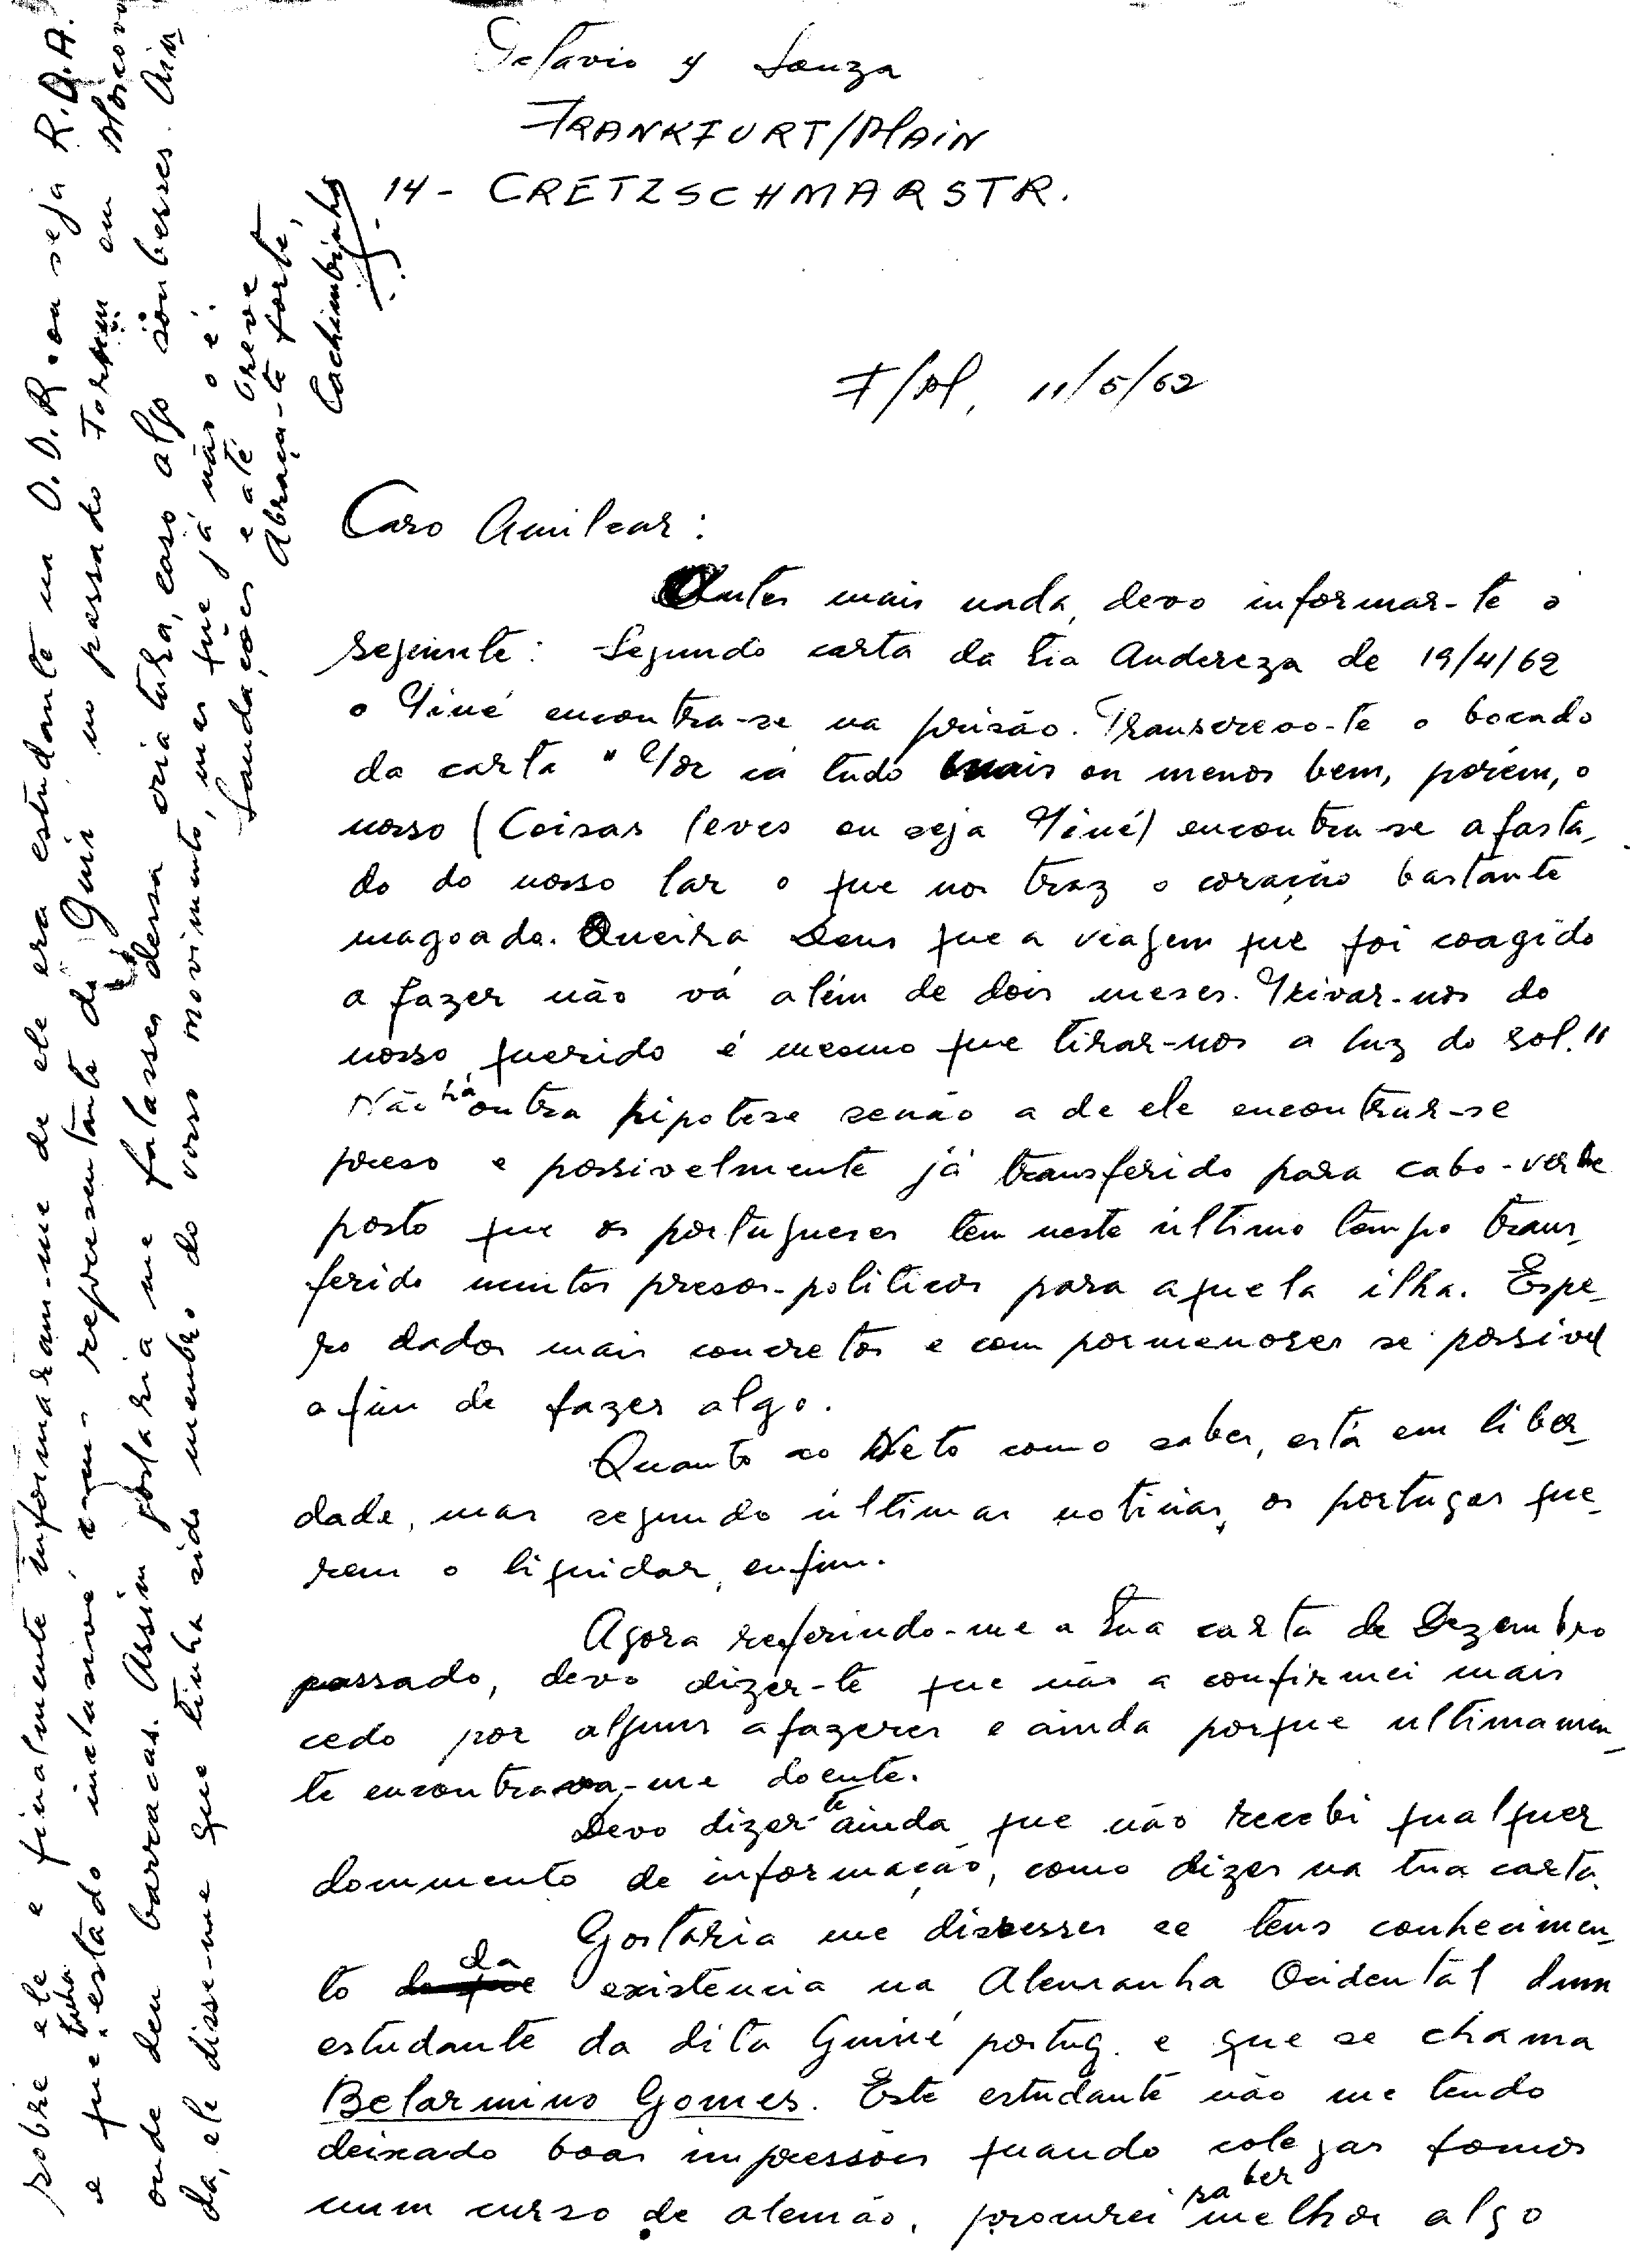 Octavio y Souza
FRANKFURT/MAIN
14 - CRETZSCHMARSTR.
F/M, 11/5/62
Caro Amilcar:
Antes mais nada, devo informar-te o
seguinte: Segundo carta da tia Andereza de 19/4/62
o Piné encontra-se na prisão. Transcrevo-te o bocado
da carta "Por cá tudo mais ou menos bem, porém, o
nosso (Coisas leves ou seja Piné) encontra-se afasta-
do do nosso lar o que nos traz o coração bastante
magoado. Queira Deus que a viagem que foi coagido
a fazer não vá além de dois meses. Privar-nos do
nosso querido é mesmo que tirar-nos a luz do sol."
Não há outra hipotese senão a de ele encontrar-se
preso e possivelmente já transferido para cabo-verde
posto que os portugueses tem neste último tempo trans-
ferido muitos presos-politicos para aquela ilha. Espe-
ro dados mais concretos e com pormenores se possivel
a fim de fazer algo.
Quanto ao Neto como sabes, está em liber-
dade, mas segundo últimas noticias, os portugas que-
rem o liquidar, enfim.
Agora referindo-me a tua carta de Dezembro
passado, devo dizer-te que não a confirmei mais
cedo por alguns afazeres e ainda porque ultimamen-
te encontrava-me doente.
Devo dizer-te ainda que não recebi qualquer
documento de informação, como dizes na tua carta.
Gostaria me dissesses se tens conhecimen-
to da existencia na Alemanha Ocidental dum
estudante da dita Guiné portug. e que se chama
Belarmino Gomes. Este estudante não me tendo
deixado boas impressões quando colegas fomos
num curso de alemão, procurei saber melhor algo
sobre ele e finalmente informaram-me de ele era estudante na D.D.R. ou seja R.D.A.
e que tinha estado inclusivé como representante da Guiné no passado Forum em Moscovo
onde deu barracas. Assim gostaria me falasses dessa criatura, caso algo souberes. Ain
da, ele disse-me que tinha sido membro do vosso movimento, mas que já não o é.
Saudações e até breve
Abraça-te forte,
Cachimbinho